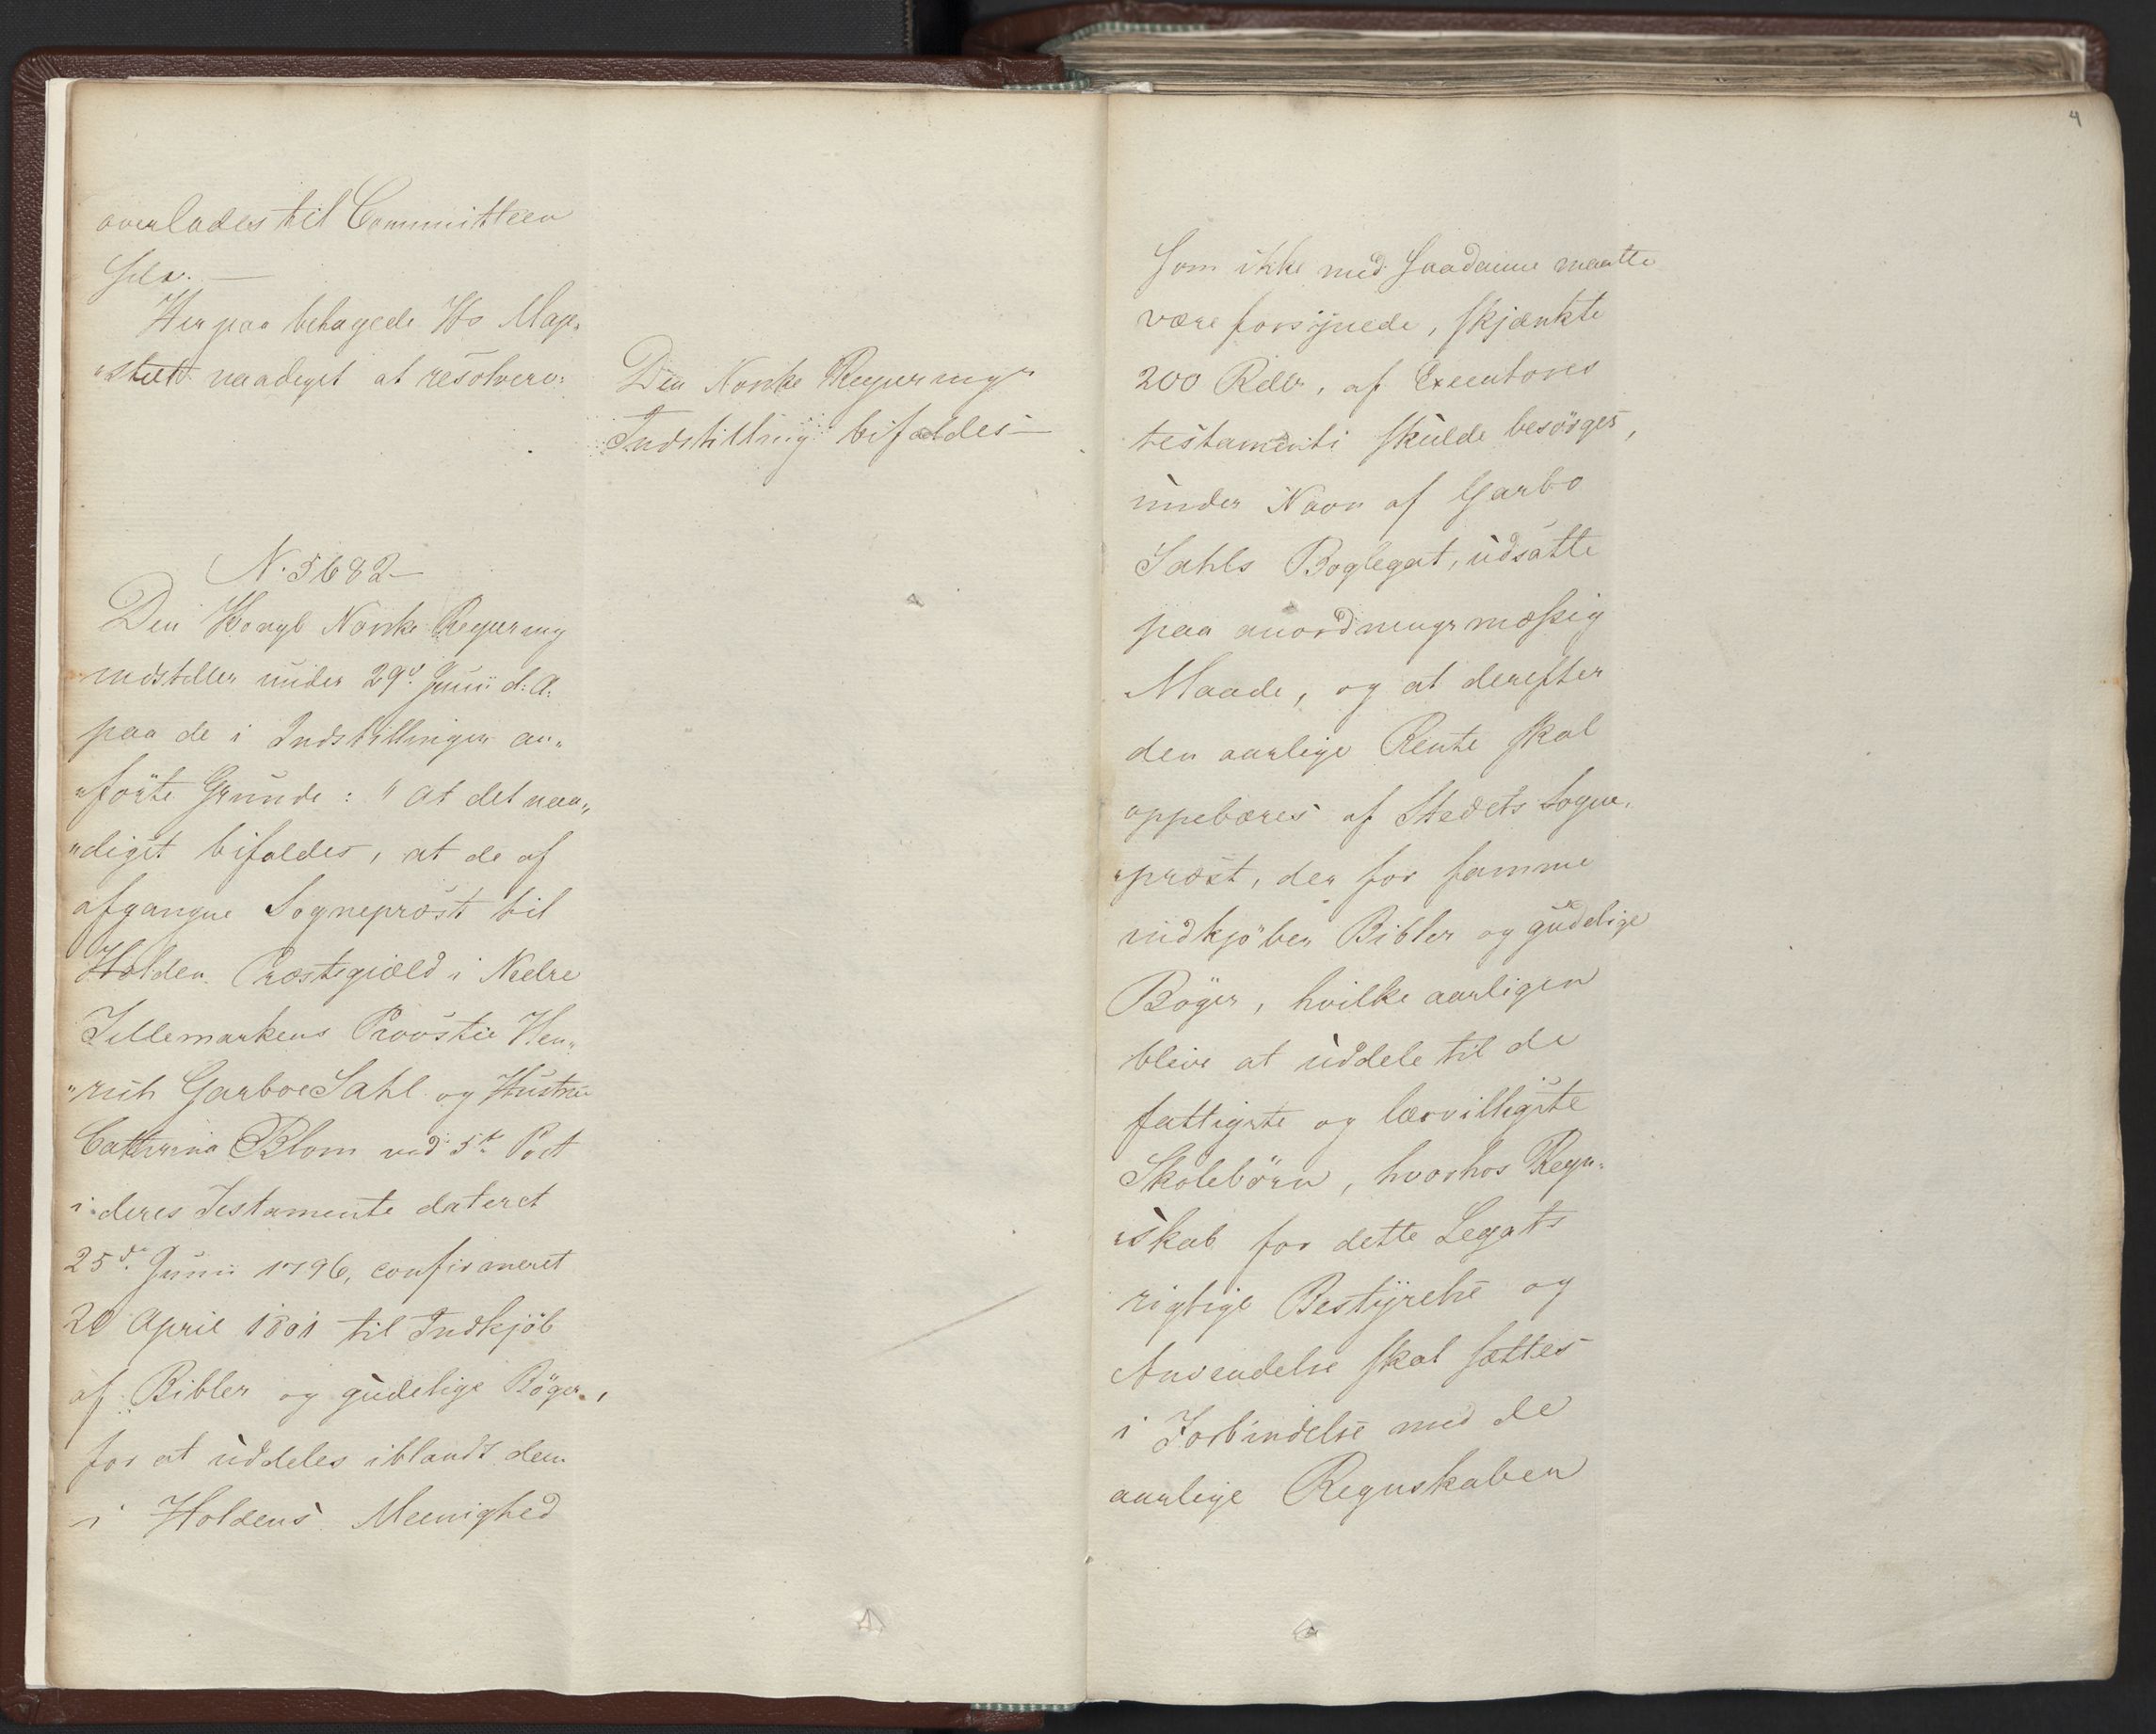 overlades til Committeen
selv. —
Herpaa behagede Hs Maje„
„stæt naadigst at resolvere:
Den Norske Regjerings
Indstilling bifaldes —
N. 5682 —
Den Kongl Norske Regjering
indstiller under 29d. Junii d: A:
paa de i Indstillingen an„
„förte Grunde: " at det naa„
„digst bifaldes, at de af
afgangne Sognepræst til
Holden Præstegiæld i Nedre
Tellemarkens Provstie Hen„
„rich Garboe Sahl og Hustru
Cathrina Blom ved 5t Post
i deres Testamente dateret
25d. Junii 1796, confirmeret
20 April 1801 til Indkjöb
af Bibler og gudelige Böger,
for at uddeles iblandt dem
i Holdens Meenighed
4
som ikke med saadanne maatte
være forsÿnede, skjænkte
200 Rdlr, af Executores
testamenti skulde besörges,
under Navn af Garbo
Sahls Boglegat, udsatte
paa anordningsmæssig
Maade, og at derefter
den aarlige Rente skal
oppebæres af Stedets Sogne„
„præst, der for samme
indkjöber Bibler og gudelige
Böger, hvilke aarligen
blive at uddele til de
fattigste og lærvilligste
Skolebörn, hvorhos Regn„
„skab for dette Legats
rigtige Bestÿrelse og
Anvendelse skal sættes
i Forbindelse med de
aarlige Regnskaber